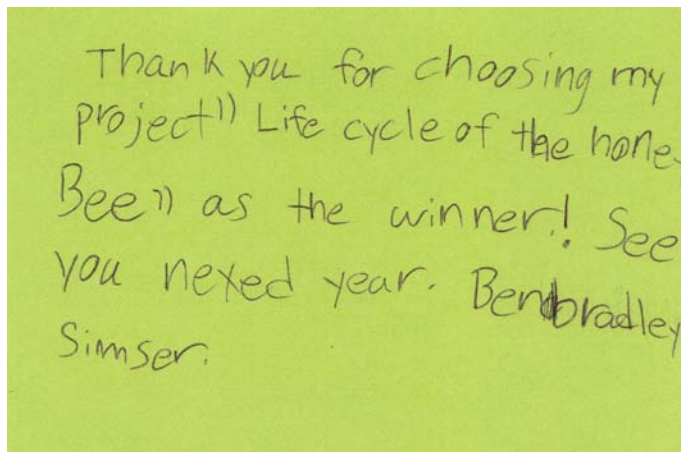 Thank you for choosing my
project" Life cycle of the hone-
Bee" as the winner! See
you nexed year. Benbradley
Simser.